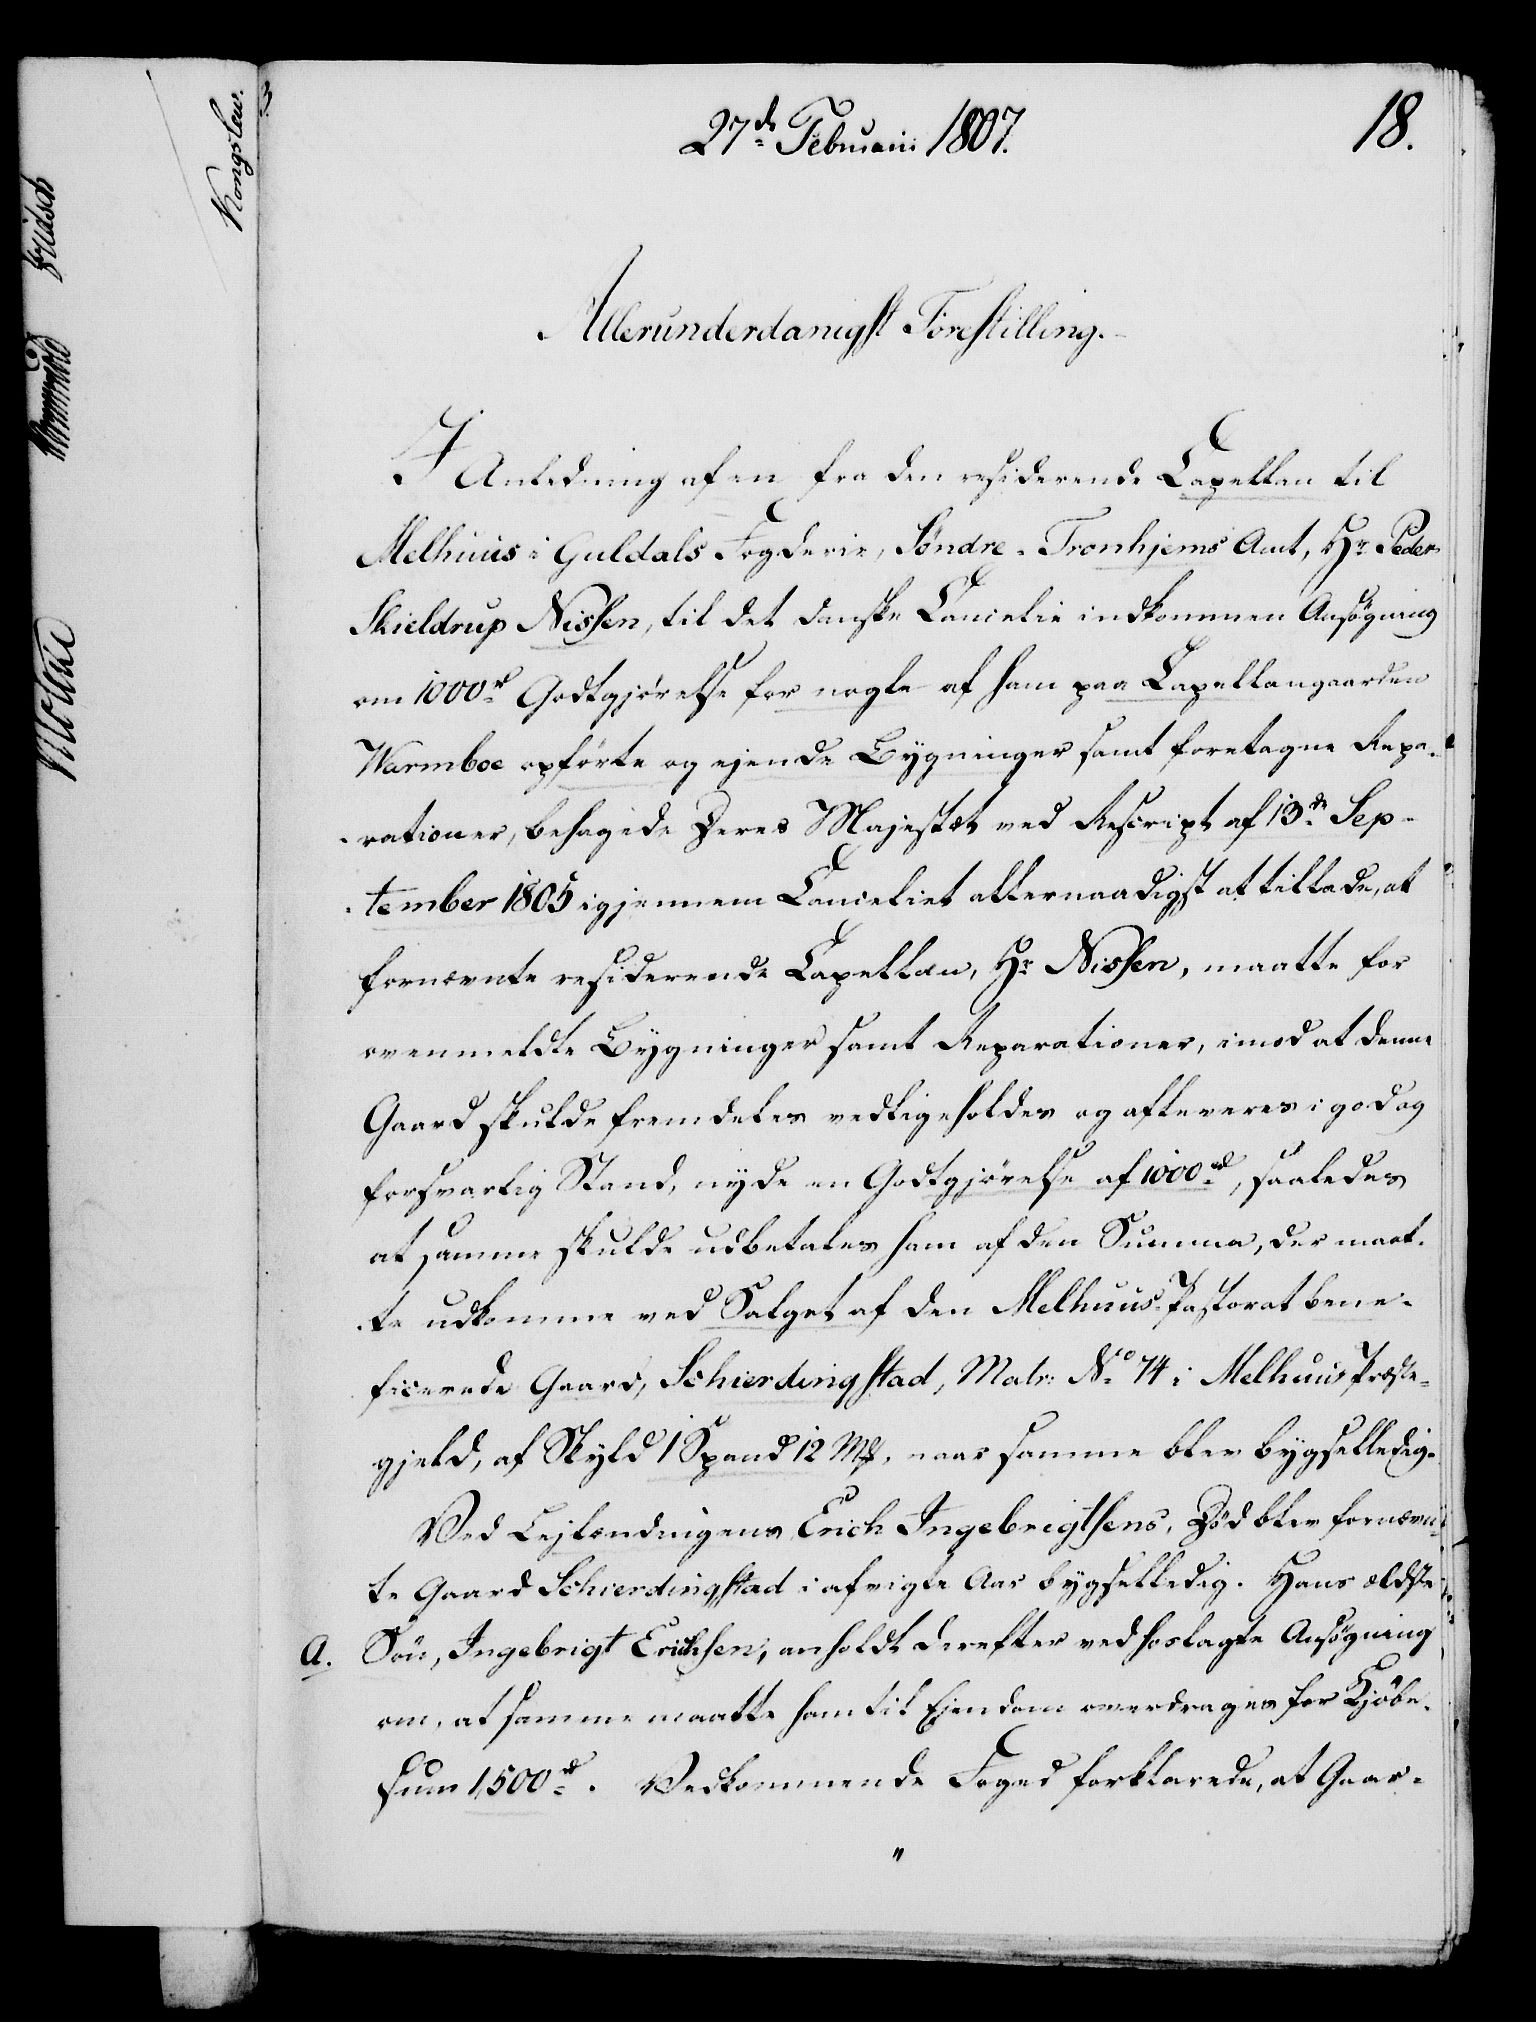 27de Februarii 1807.
18.
Allerunderdanigst Forestilling.
I Anledning af en fra den residerende Capellan til
Melhuus i Guldals Fogderie, Söndre-Tronhjems Amt, Hr Peder
Skieldrup Nissen, til det danske Cancelie indkommen Ansøgning
om 1000rd Godtgjørelse for nogle af ham paa Capellangaarden
Warmboe opførte og ejende Bygninger samt foretagne Repa-
rationer, behagede Deres Majestæt ved Rescript af 13de Sep-
tember 1805 igjennem Canceliet allernaadigst at tillade, at
fornævnte residerende Capellan, Hr Nissen, maatte for
ovenmeldte Bygninger samt Reparationer, imod at denne
Gaard skulde fremdeles vedligeholdes og afleveres i god og
forsvarlig Stand, nyde en Godtgjørelse af 1000rd, saaledes
at samme skulde udbetales ham af den Summa, der maat-
te udkomme ved Salget af den Melhuus Pastorat bene-
ficerede Gaard, Schierdingstad, Matr: No 74 i Melhuus Præste-
gjeld, af Skyld 1 Spand 12 Mk, naar samme blev bygselledig.
Ved Lejlændingens Erich Ingebrigtsens, Død blev fornævn-
te Gaard Schierdingstad i afvigte Aar bygselledig. Hans ældste
A. Søn, Ingebrigt Erichsen, anholdt derefter ved hoslagte Ansøgning
om, at samme maatte ham til Ejendom overdrages for Kjøbe-
sum 1500rd. Vedkommende Foged forklarede, at Gaar-
"
Moltke
Fridsch
Kongslew.